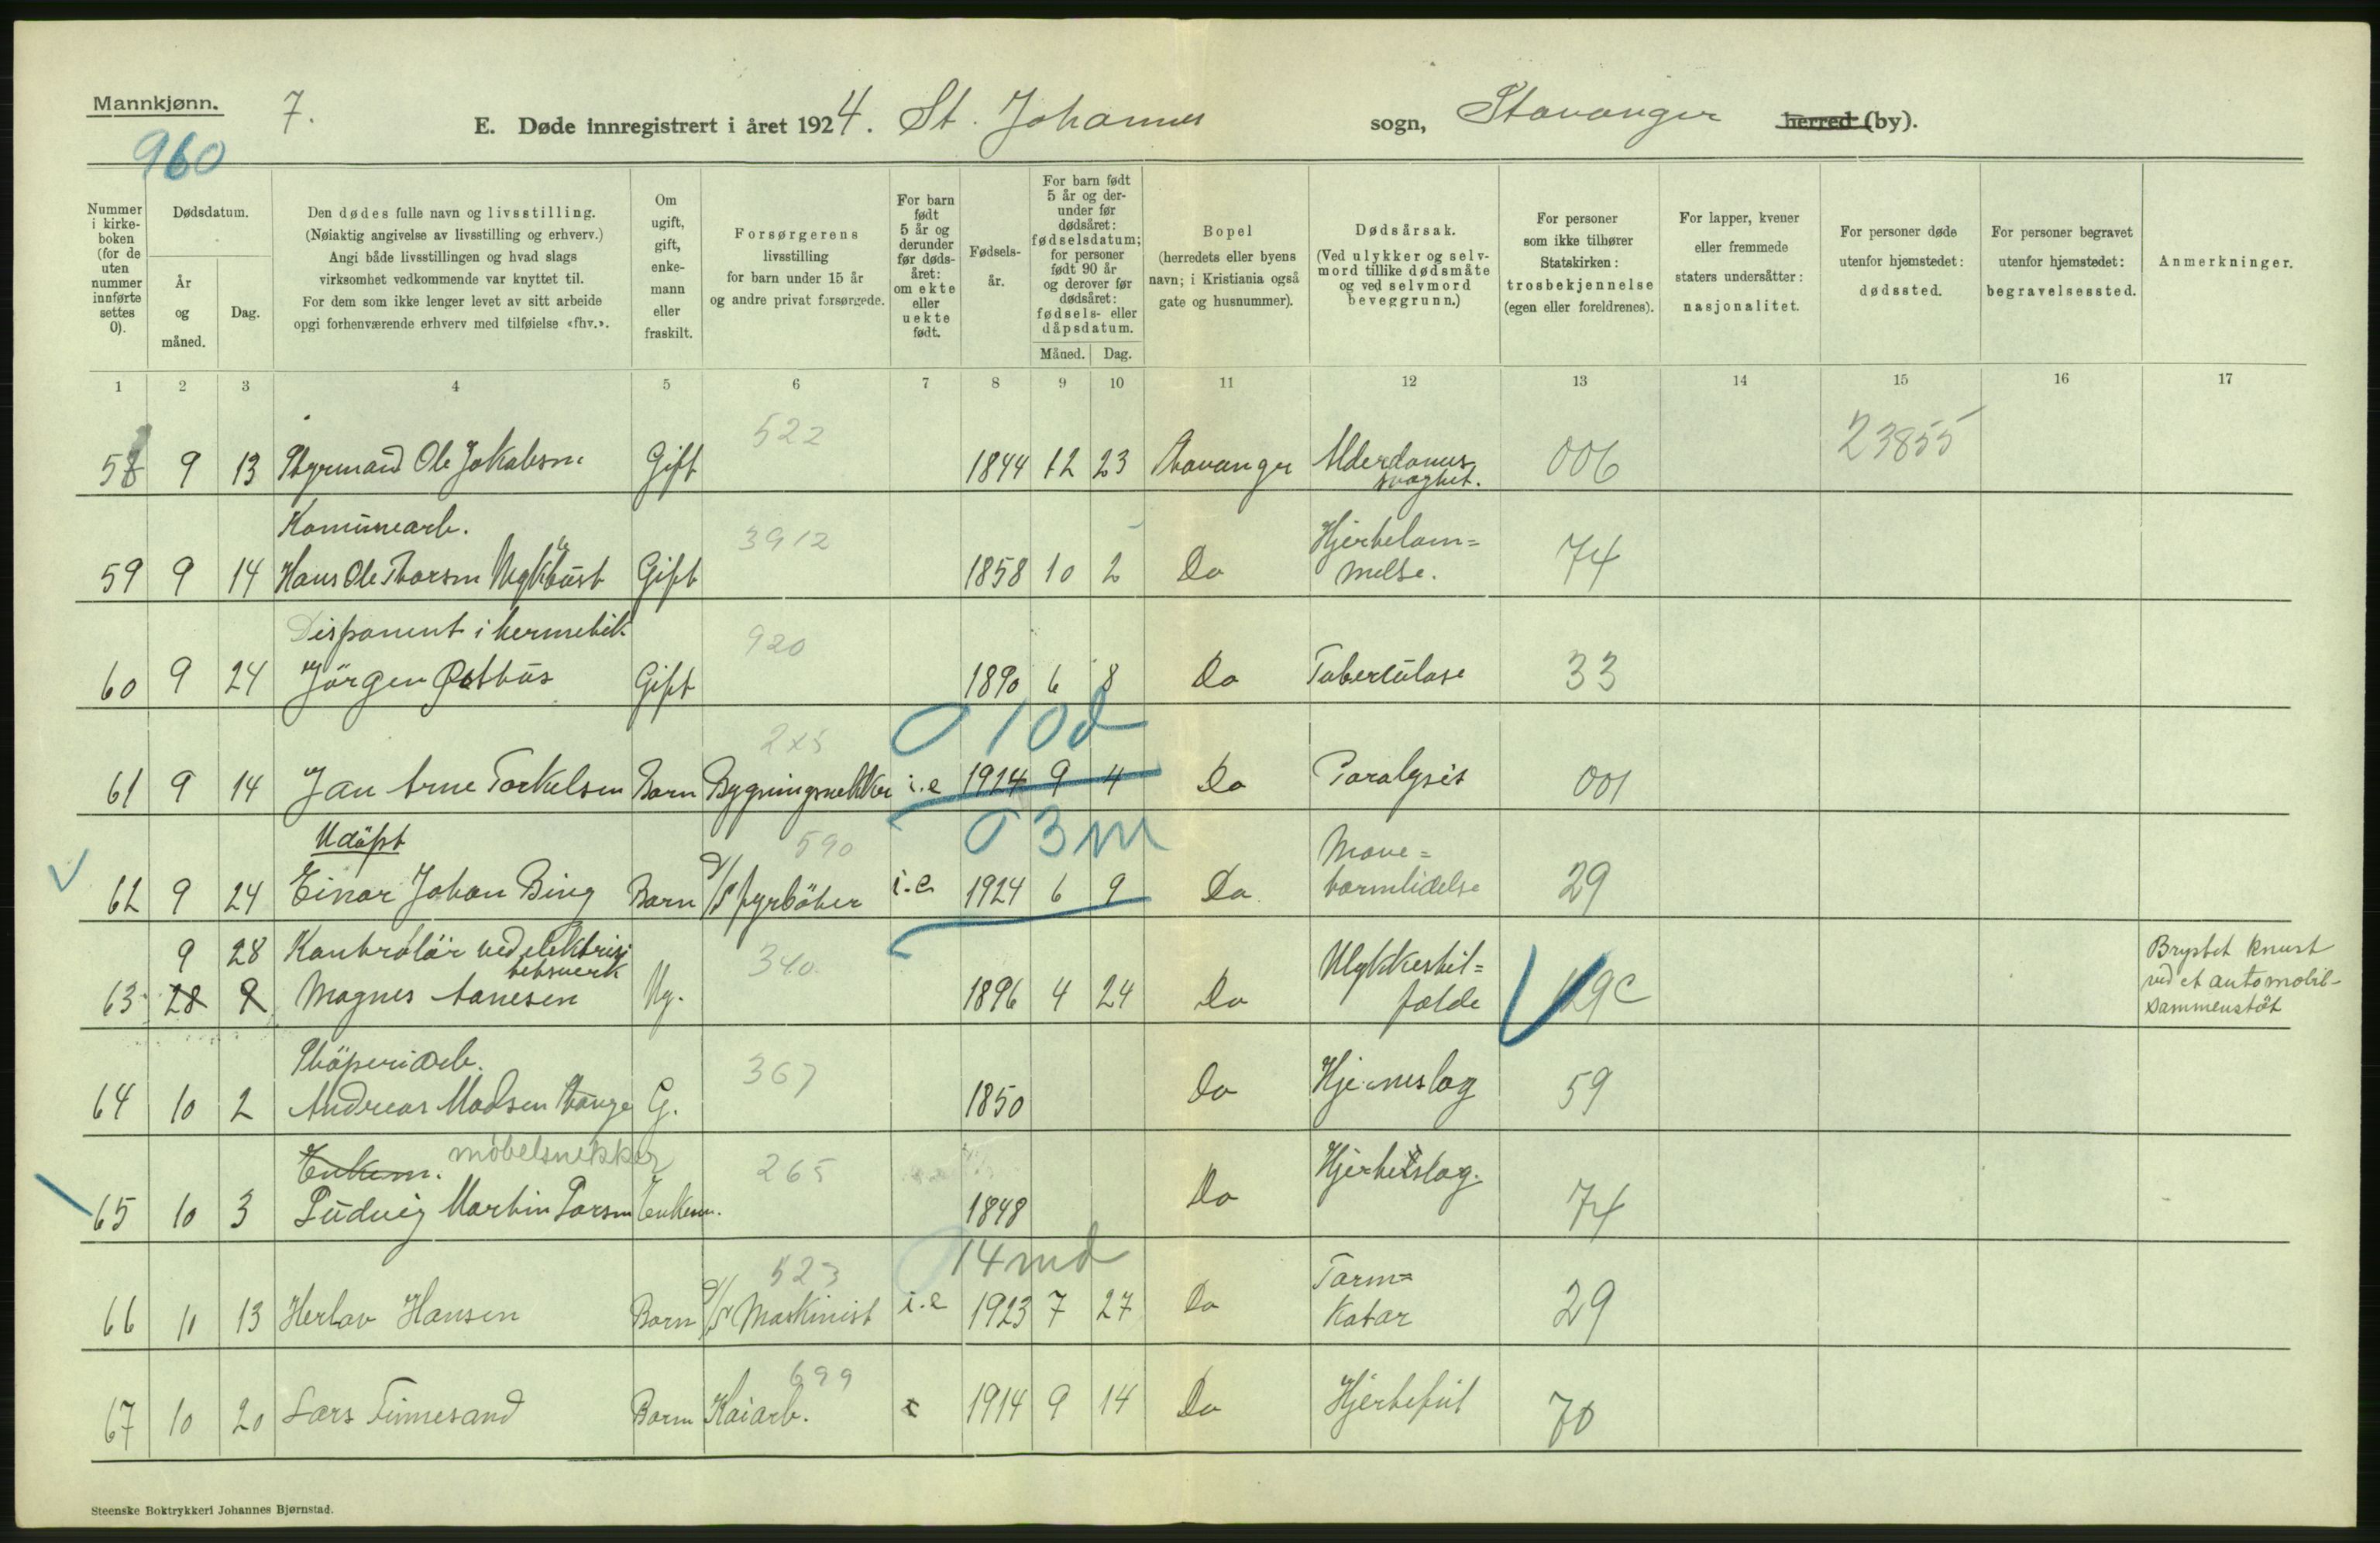 Mannkjønn.
7.
960
E. Døde innregistrert i året 1924. St. Johannes sogn, Stavanger herred (by).
Nummer i kirkeboken (for de uten nummer innførte settes 0).
Dødsdatum.
År og måned.
Dag.
Den dødes fulle navn og livsstilling.
(Nøiaktig angivelse av livsstilling og erhverv.)
Angi både livsstillingen og hvad slags
virksomhet vedkommende var knyttet til.
For dem som ikke lenger levet av sitt arbeide
opgi forhenværende erhverv med tilføielse «fhv.».
Om ugift, gift, enkemann eller fraskilt.
Forsørgerens
livsstilling
for barn under 15 år
og andre privat forsørgede.
For barn født 5 år og derunder før dødsåret: om ekte eller uekte født.
Fødselsår.
For barn født 5 år og derunder før dødsåret: fødselsdatum; for personer født 90 år og derover før dødsåret: fødsels- eller dåpsdatum.
Måned.
Dag.
Bopel
(herredets eller byens
navn; i Kristiania også
gate og husnummer).
Dødsårsak.
(Ved ulykker og selvmord tillike dødsmåte og ved selvmord beveggrunn.)
For personer
som ikke tilhører
Statskirken:
trosbekjennelse
(egen eller foreldrenes).
For lapper, kvener
eller fremmede
staters undersåtter:
nasjonalitet.
For personer døde
utenfor hjemstedet:
dødssted.
For personer begravet
utenfor hjemstedet:
begravelsessted.
Anmerkninger.
1 2 3 4 5 6 7 8 9 10 11 12 13 14 15 16 17
522 23855
58 9 13 Styrmand Ole Jakobsen Gift 1844 12 23 Stavanger Alderdoms svaghet. 006
Komunearb. 3912
59 9 14 Hans Ole Thorsen Gift 1858 10 2 Do Hjertelam=
melse. 74
Disponent i hermetik 920
60 9 24 Jörgen Østhus Gift 1890 6 8 Do Tuberculose 33
245 0 10 d
61 9 14 Jan Arne Torkelsen Barn Bygningsnekker i.e 1924 9 4 Do Paralysis 001
Udöpt 590 0 3 m
62 9 24 Einar Johan Bing Barn D/S fyrböter i.e. 1924 6 9 Do Mave=
tarmlidelse 29
9 28 Kontrolör ved elektrisi
tetsverk 340
63 28 9 Magnes Aanesen Ug. 1896 4 24 Do Ulykkestil=
fælde 129c Brystet knust
ved et automobil-
sammenstöt
Stöperiarb. 367
64 10 2 Andreas Madsen Stange G. 1850 Do Hjerneslag 59
Enkem. möbelsnekker 265
65 10 3 Ludvig Martin Larsen Enkem. 1848 Do Hjerteslag. 74
523 14 md
66 11 13 Herlov Hansen Barn D/S Maskinist i.e 1923 7 27 Do Tarm=
Katar 29
699
67 10 20 Lars Finnesand Barn Kaiarb. 1914 9 14 Do Hjertefeil 70
Steenske Boktrykkeri Johannes Bjørnstad.